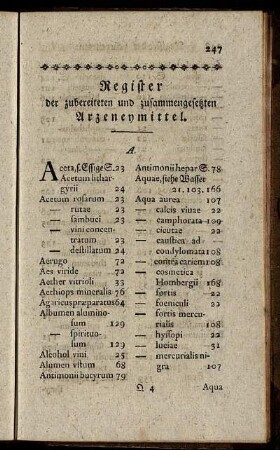 247
Register
der zubereiteten und zusammengesetzten
Arzeneymittel.
A.
Aceta, s. Essige S. 23
Acetum lithar-
gyrii 24
Acetum rosarum 23
— rutae 23
— sambuci 23
— vini concen-
tratum 23
— destillatum 24
Aerugo 72
Aes viride 72
Aether vitrioli 33
Aethiops mineralis 76
Agaricus praeparatus 64
Albumen alumino-
sum 129
— spirituo-
sum 129
Alcohol vini 25
Alumen vstum 68
Antimonii butyrum 79
Antimonii hepar S. 78
Aquae, siehe Wasser
21. 103. 166
Aqua aurea 107
— calcis viuae 22
— camphorata 109
— cicutae 22
— caustica ad
condylomata 108
— contra cariem 108
— cosmetica
Hombergii 168
— fortis 22
— foeniculi 22
— fortis mercu-
rialis 108
— hyssopi 22
— luciae 31
— mercurialis ni-
gra 107
Q 4 Aqua